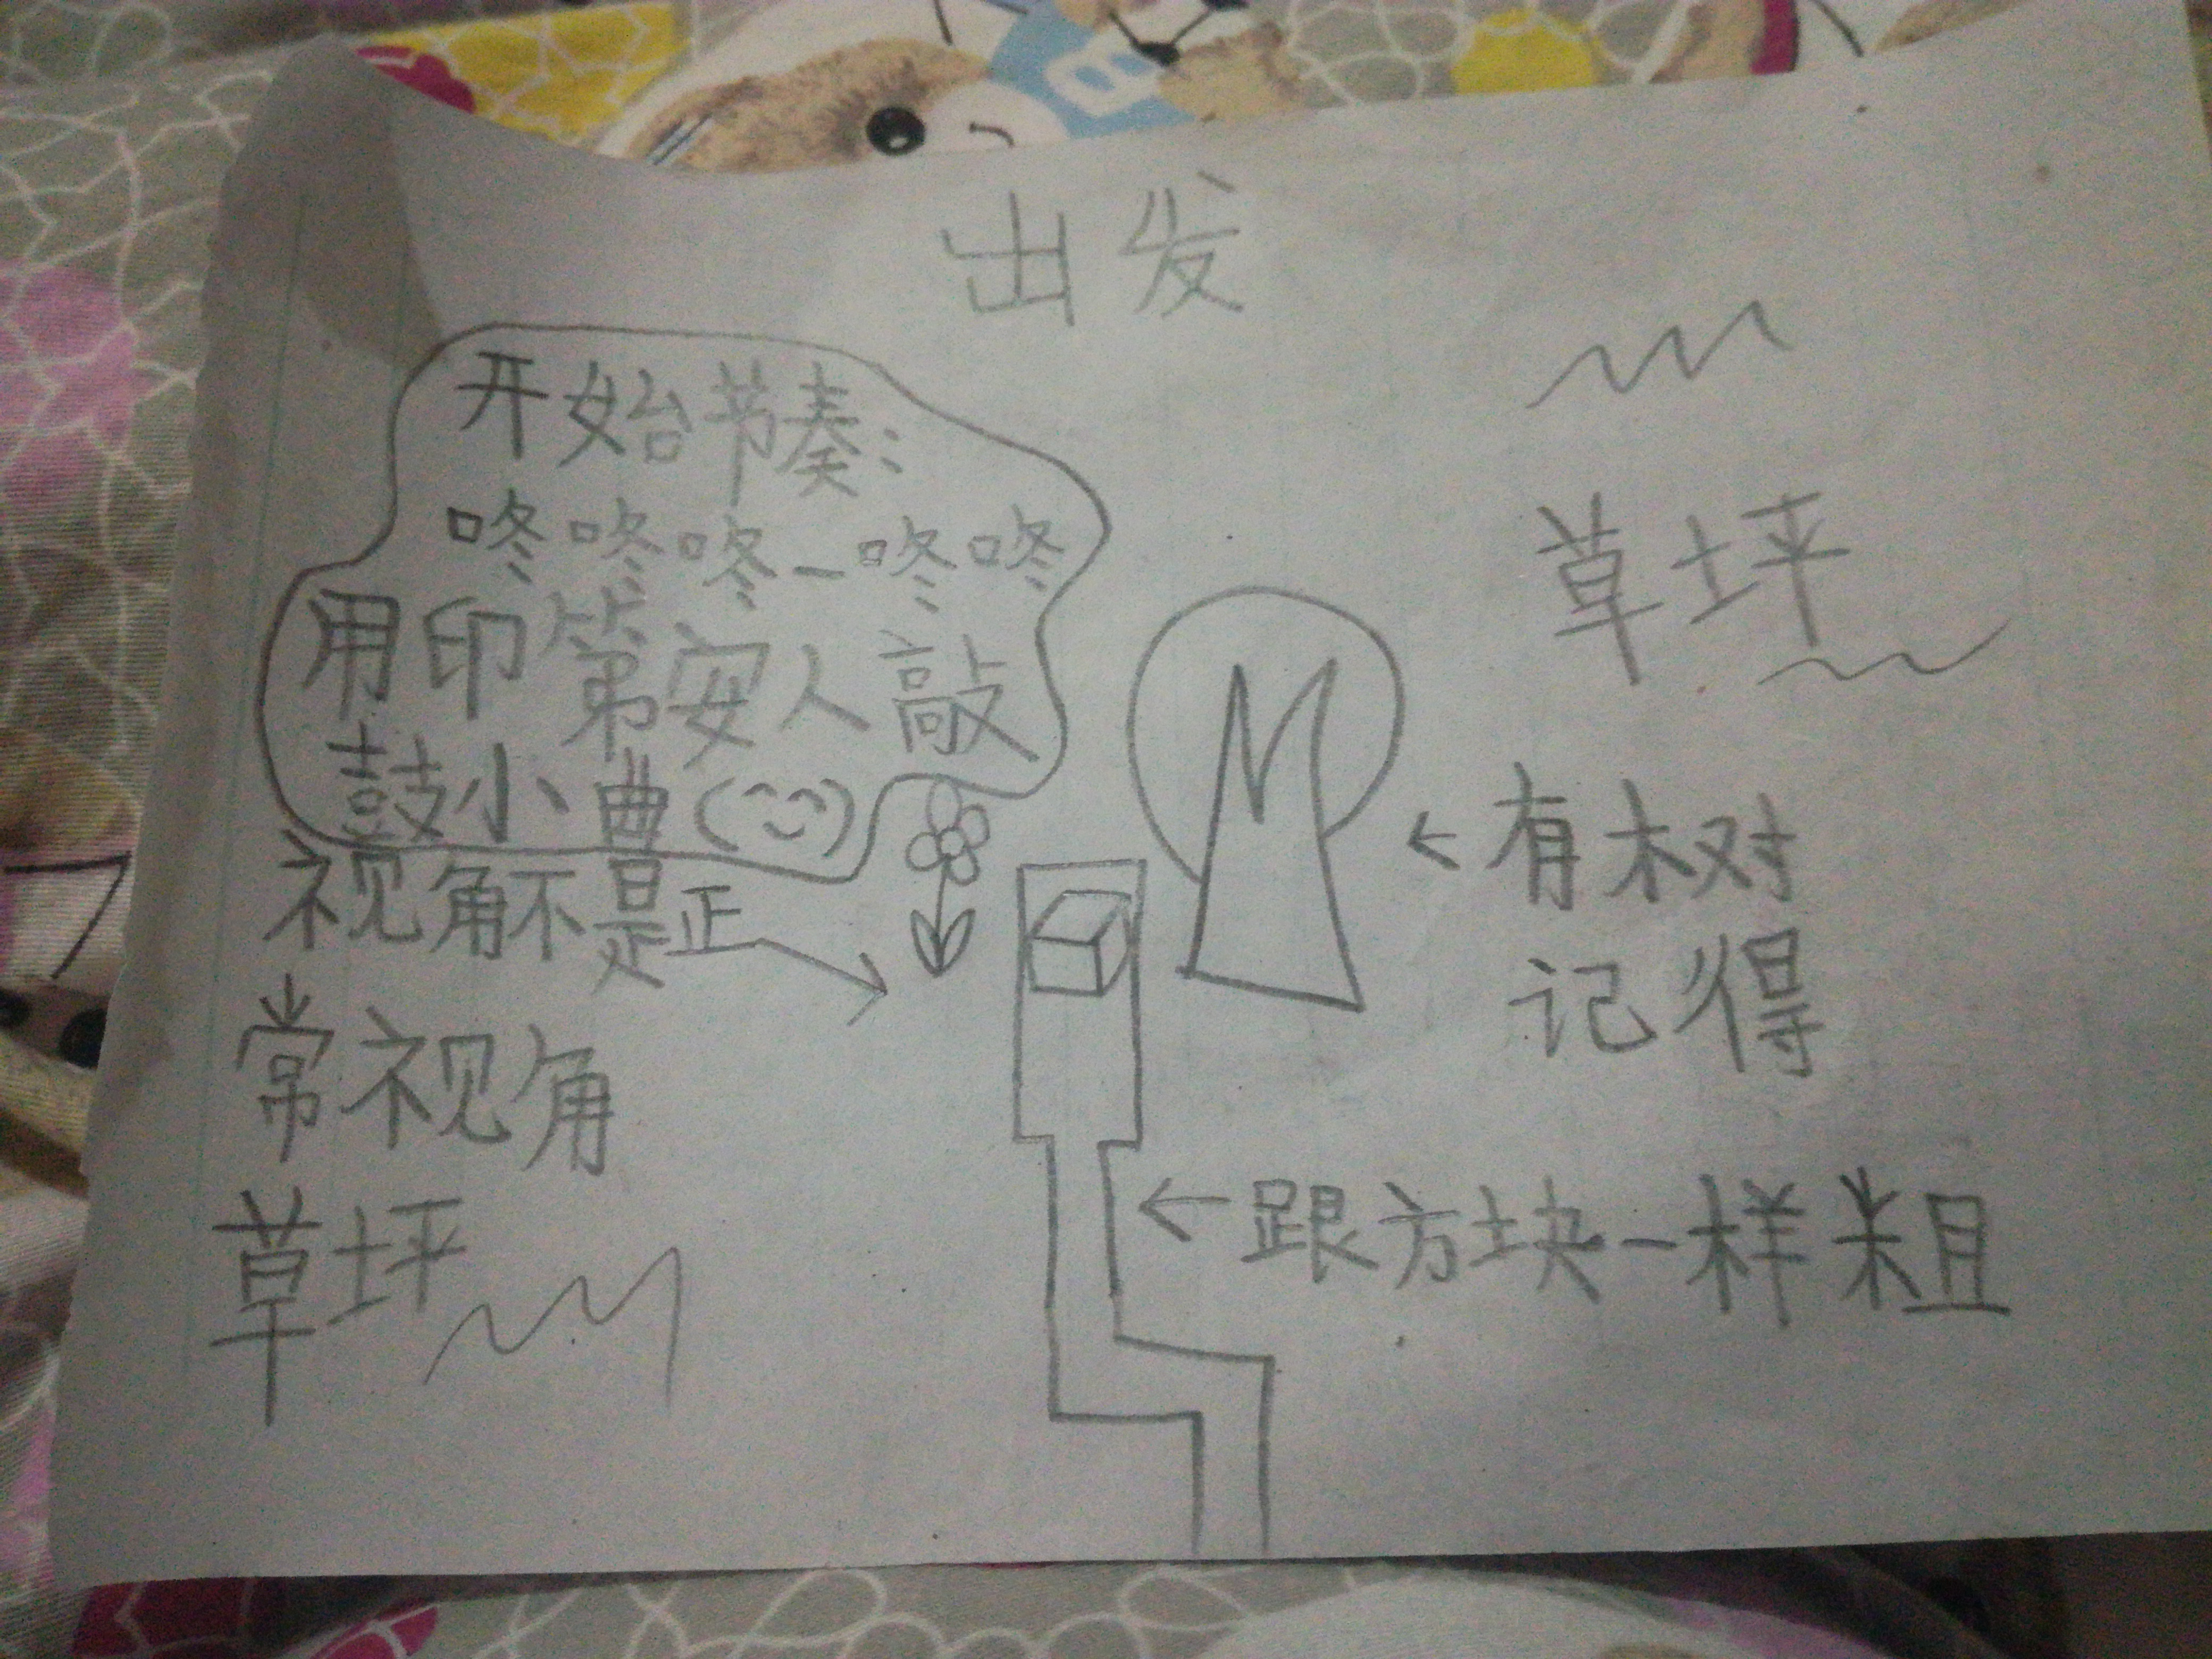 出发
开始节奏：
咚咚咚-咚咚
用印第安人敲
鼓小曲
视角不是正
常视角
草坪
草坪
←有树
记得
←跟方块一样粗
B